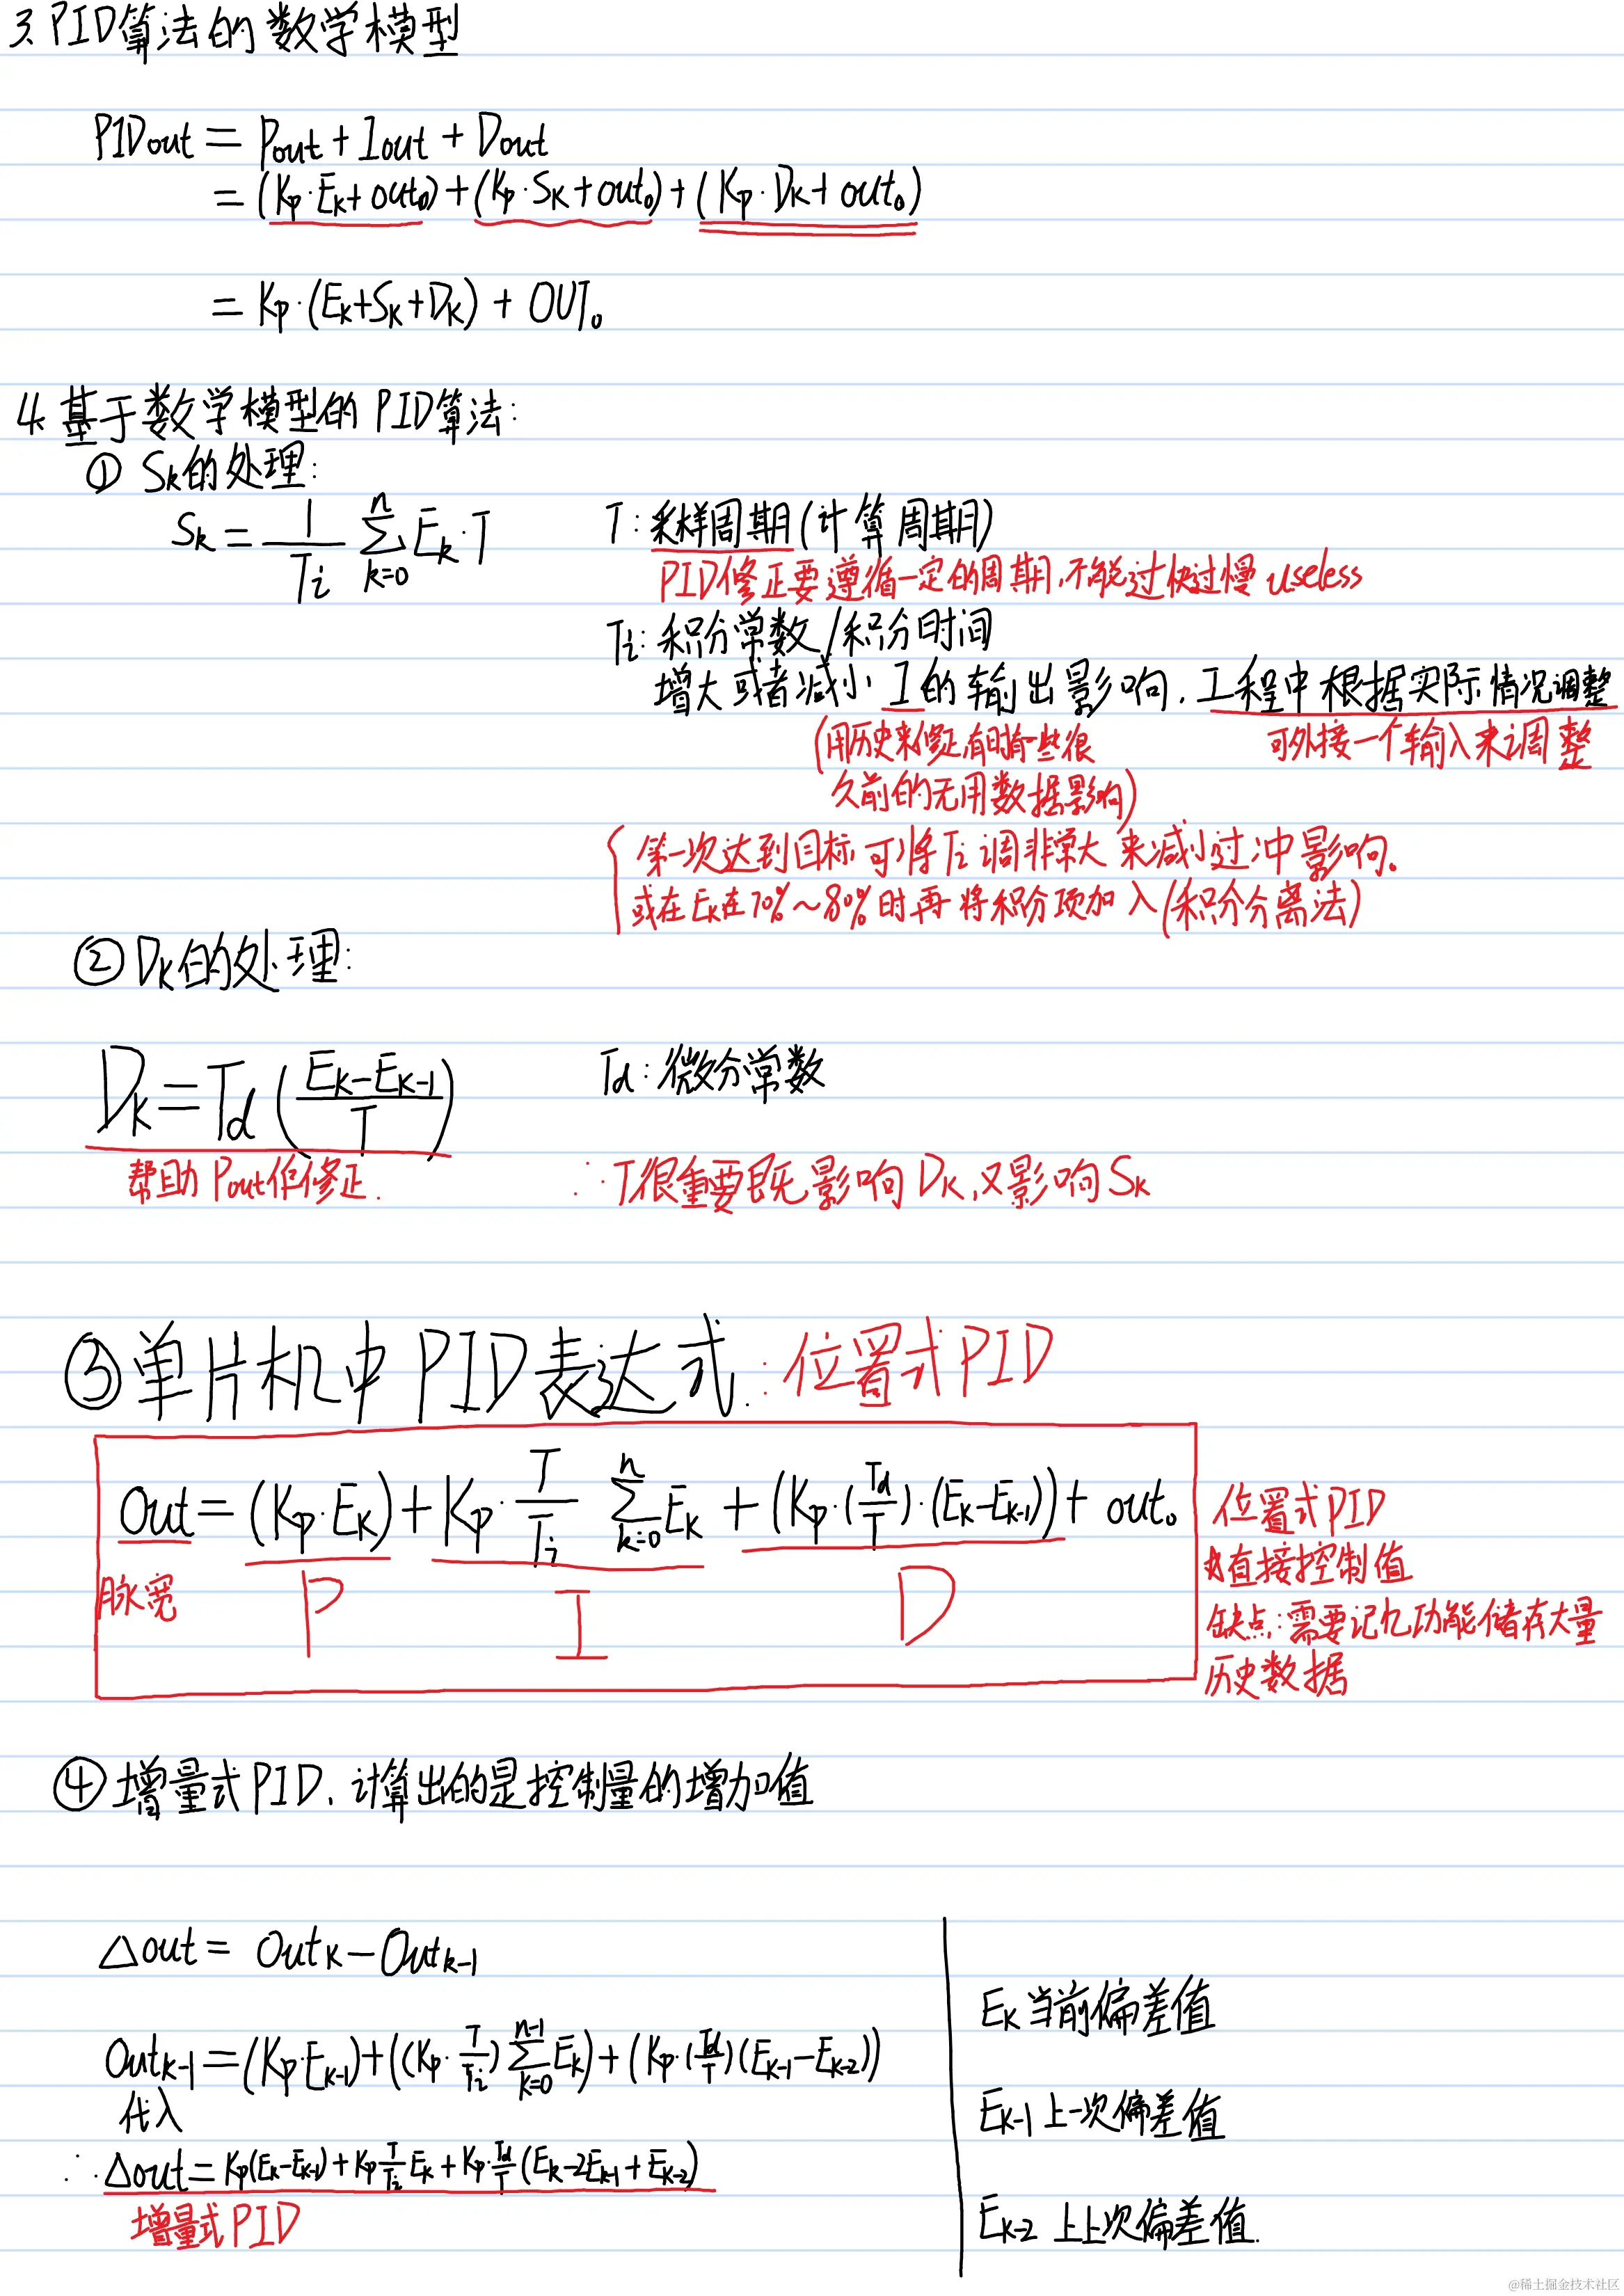 3. PID算法的数学模型
PIDout = Pout + Iout + Dout
= (Kp·Ek+out₀) + (Kp·Sk+out₀) + (Kp·Dk+out₀)
= Kp·(Ek+Sk+Dk) + OUT₀
4. 基于数学模型的PID算法:
① Sk的处理:
Sk = 1/Ti ∑(k=0→n) Ek·T
T: 采样周期(计算周期)
PID修正要遵循一定的周期,不能过快过慢 useless
Ti: 积分常数/积分时间
增大或者减小 I 的输出影响, 工程中根据实际情况调整
(用历史来修正有时有一些很
久前的无用数据影响)
可外接一个输入来调整
第一次达到目标可将Ti调非常大来减小过冲影响。
或在Ek在70%~80%时再将积分项加入(积分分离法)
② Dk的处理:
Dk = Td((Ek-Ek-1)/T)
Td: 微分常数
帮助Pout作修正.
∴T很重要既影响Dk,又影响Sk
③ 单片机中PID表达式: 位置式PID
Out = (Kp·Ek) + Kp·T/Ti ∑(k=0→n) Ek + (Kp·(Td/T)·(Ek-Ek-1)) + out₀
脉宽 P I D
位置式PID
直接控制值
缺点:需要记忆功能储存大量
历史数据
④ 增量式PID, 计算出的是控制量的增加值
△out = Outk - Outk-1
Outk-1 = (Kp·Ek-1) + ((Kp·T/Ti) ∑(k=0→n-1) Ek) + (Kp·(Td/T)(Ek-1-Ek-2))
代入
∴ △out = Kp(Ek-Ek-1) + Kp T/Ti Ek + Kp·Td/T (Ek-2Ek-1+Ek-2)
增量式PID
Ek 当前偏差值
Ek-1 上一次偏差值
Ek-2 上上次偏差值.
@稀土掘金技术社区